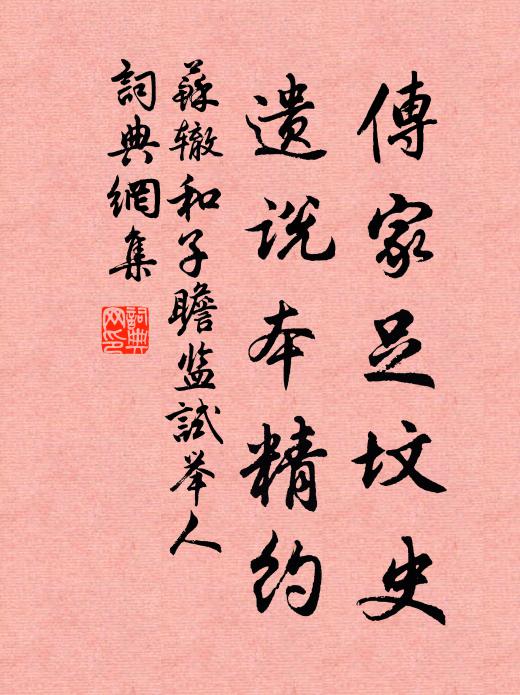 傳家足坟史
遗说本精约
蘇辙和子瞻监試举人
詞典網集
詞典
网印